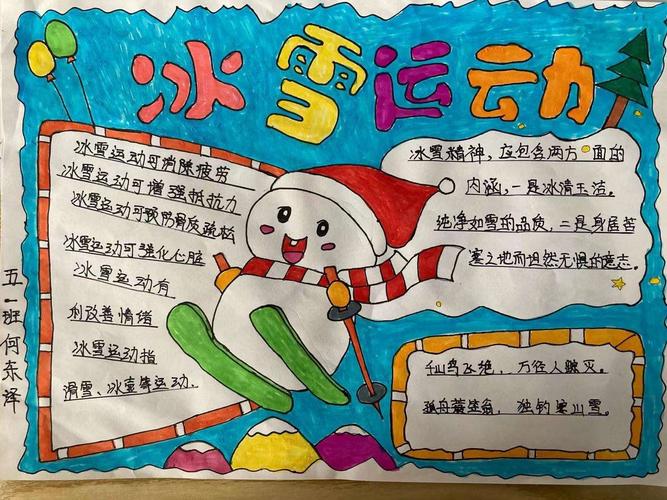 冰雪运动
冰雪运动可消除疲劳
冰雪运动可增强抵抗力
冰雪运动可预防骨质疏松
冰雪运动可强化心脏
冰雪运动有
利改善情绪
冰雪运动指
滑雪、冰壶等运动.
冰雪精神，应包含两方面的
内涵,一是冰清玉洁。
纯净如雪的品质，二是身居苦
寒之地而坦然无惧的意志。
千山鸟飞绝，万径人踪灭。
孤舟蓑笠翁，独钓寒江雪。
五一班何东泽